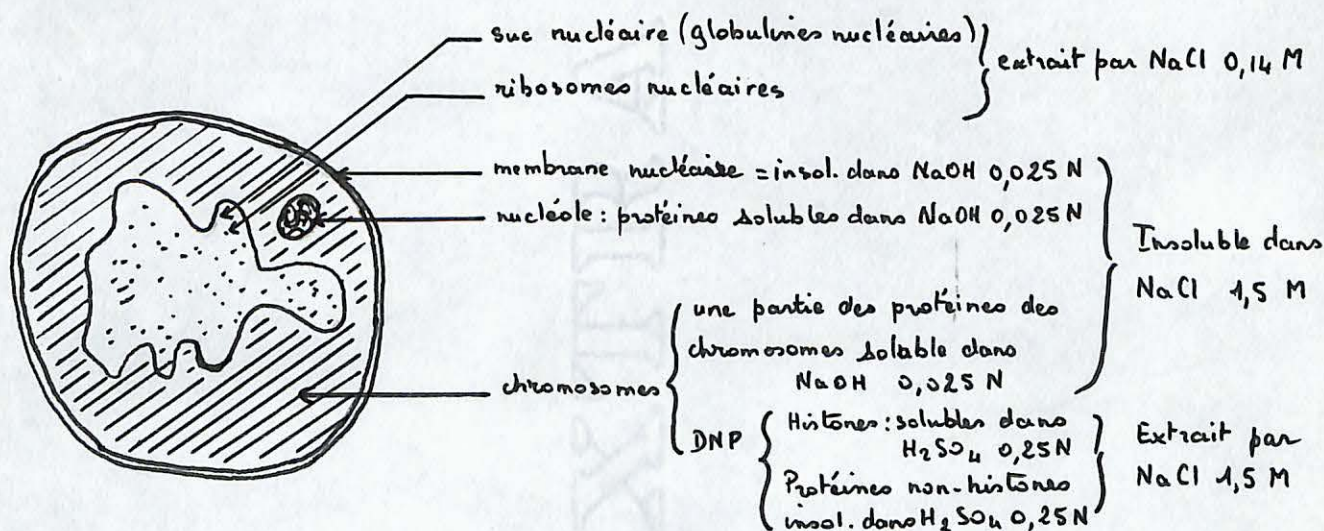 suc nucléaire (globulines nucléaires)
extrait par NaCl 0,14 M
ribosomes nucléaires
membrane nucléaire = insol. dans NaOH 0,025 N
nucléole : protéines solubles dans NaOH 0,025 N
Insoluble dans
NaCl 1,5 M
une partie des protéines des
chromosomes soluble dans
NaOH 0,025 N
chromosomes
DNP
Histones : solubles dans
H₂SO₄ 0,25 N
Protéines non-histones
insol. dans H₂SO₄ 0,25 N
Extrait par
NaCl 1,5 M